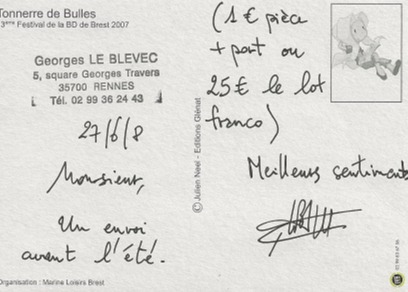 Tonnerre de Bulles
3ème Festival de la BD de Brest 2007
Georges LE BLEVEC
5, square Georges Travers
35700 RENNES
Tél. 02 99 36 24 43
27/6/8
Monsieur,
Un envoi
avant l'été.
Organisation : Marine Loisirs Brest
© Julien Neel - Editions Glénat
(1 € pièce
+ port ou
25 € le lot
franco)
Meilleurs sentiments